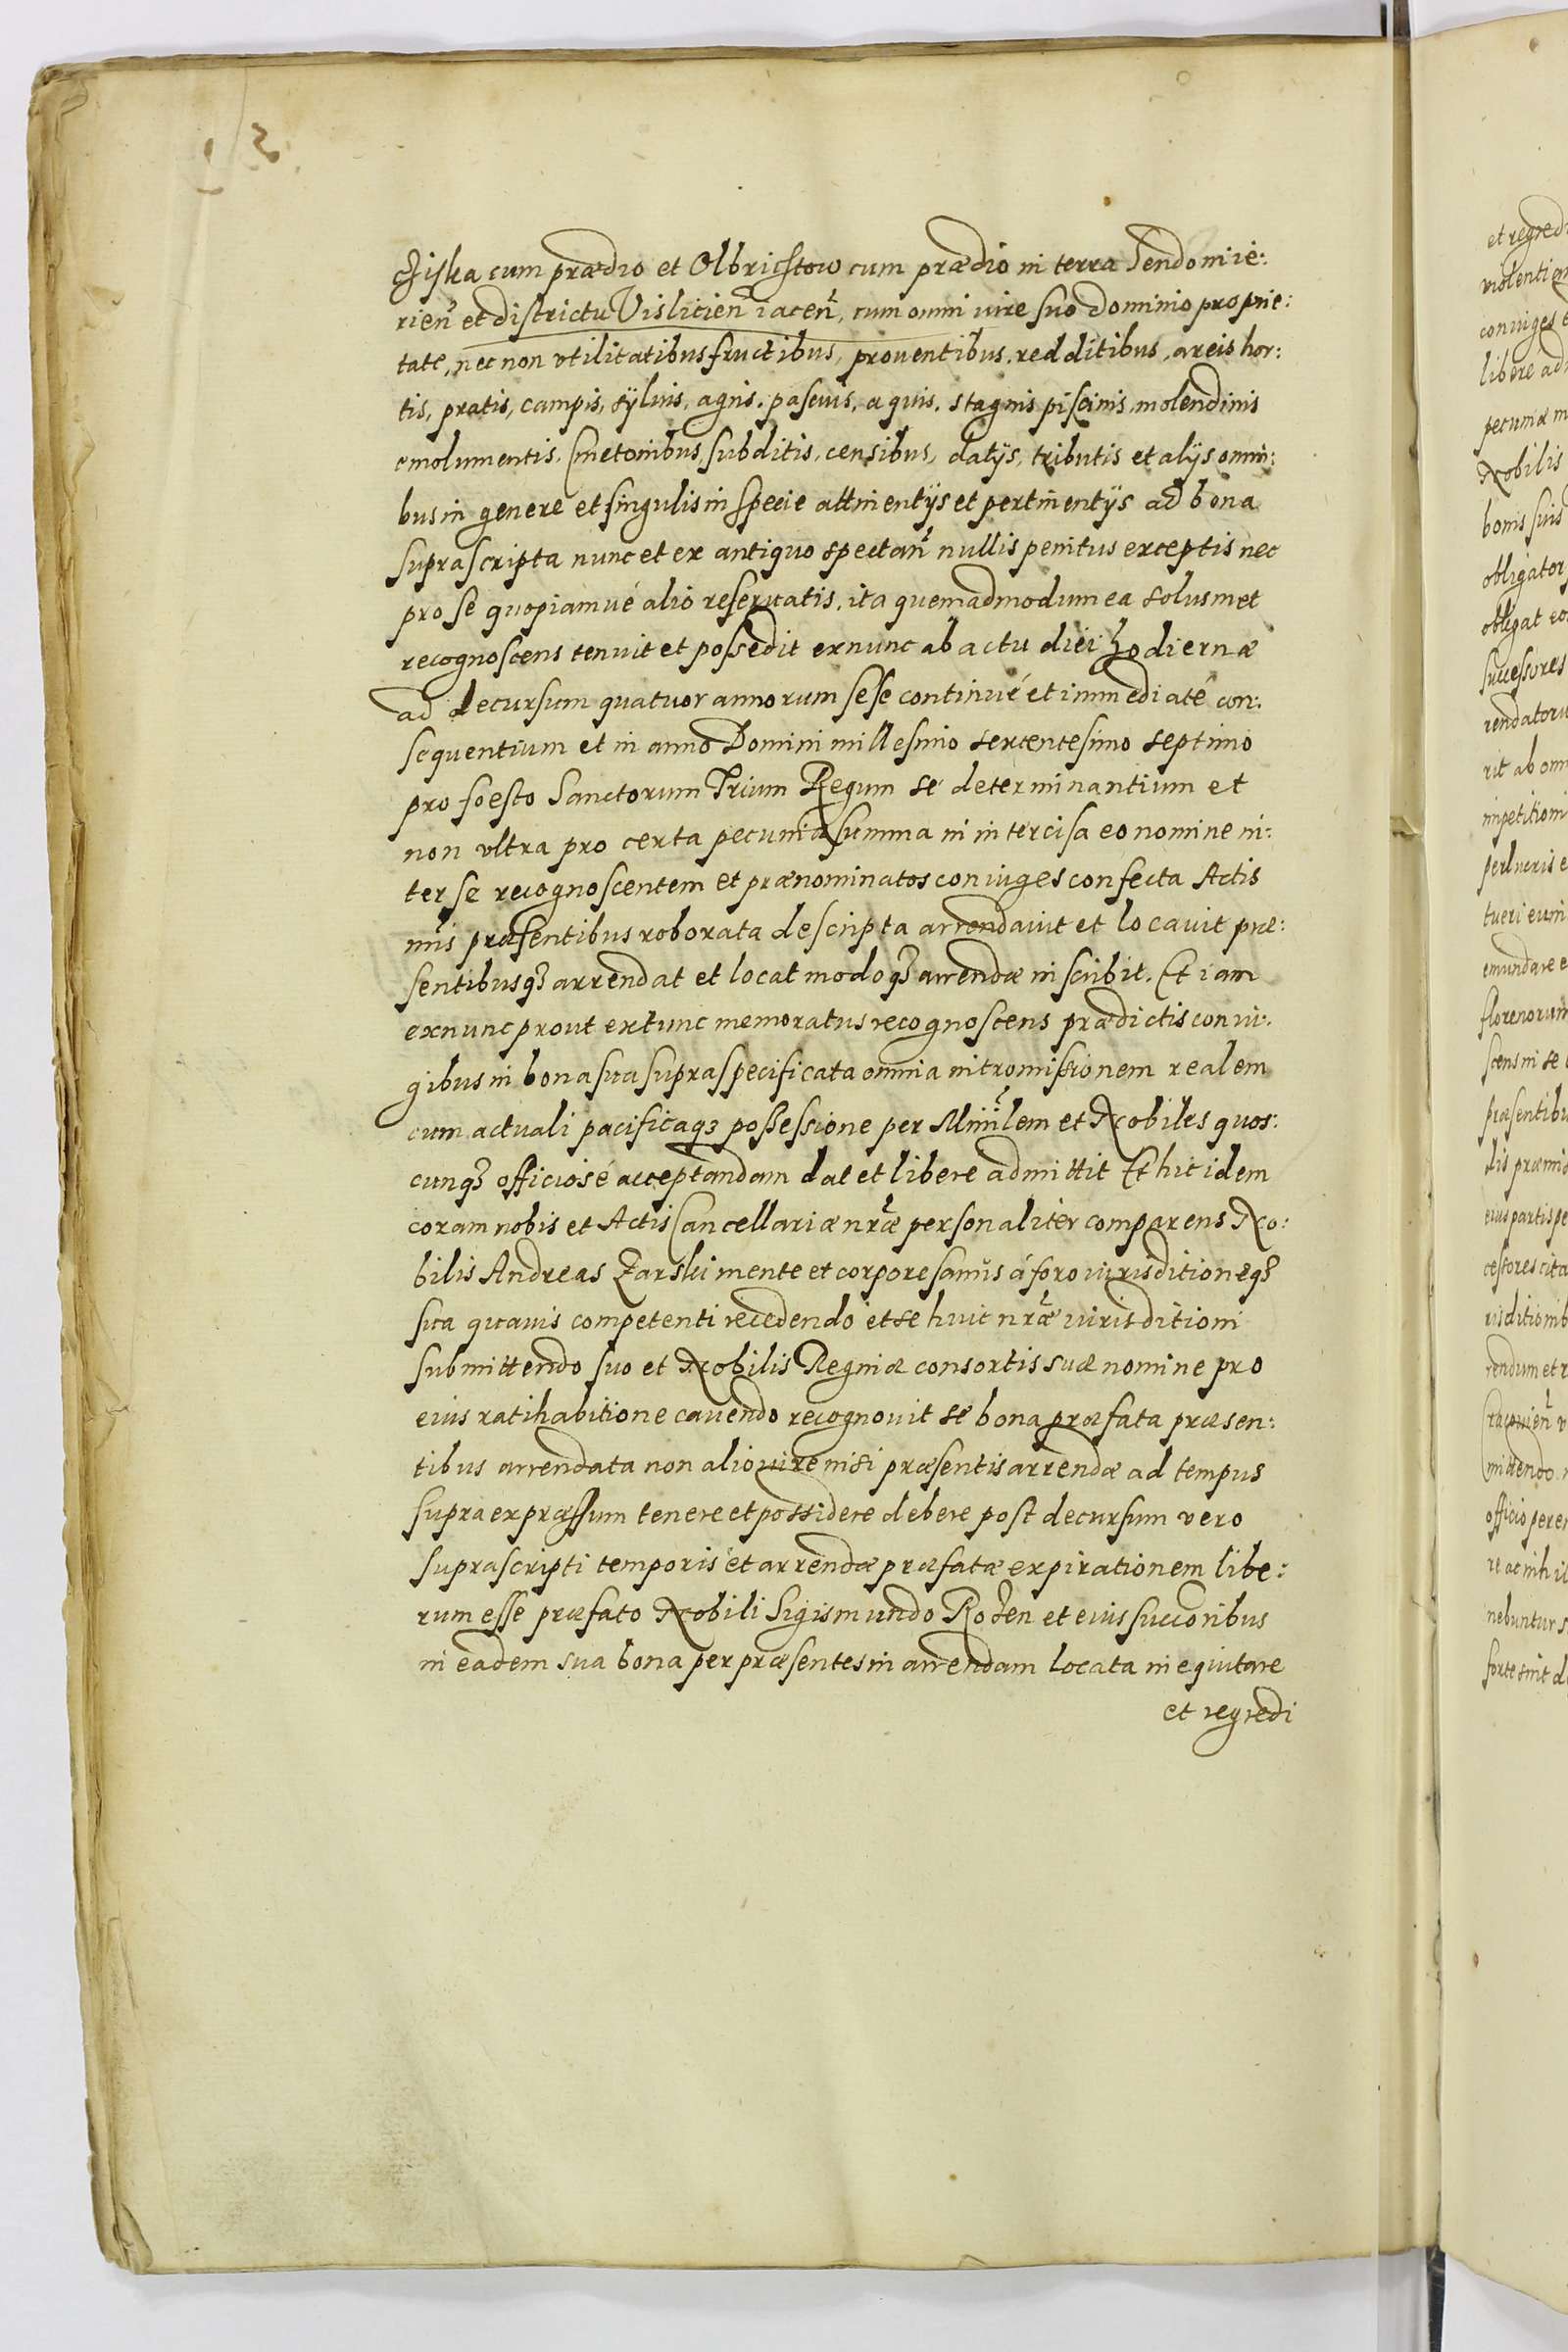 cziska cum prædio et Olbrichtow cum prædio in terra Sendomie:
rien̄ et districtu Vislicien̄ iacen̄, cum omni iure suo Dominio proprie:
tate, nec non vtilitatibus fructibus, prouentibus. redditibus, areis hor:
tis, pratis, campis, sÿluis, agris. pascuis, aquis. stagnis piscinis, molendinis
emolumentis. Cmetonibus, subditis, censibus, datÿs, tributis et alÿs omni:
bus in genere et singulis in specie attinentÿs et pertinentÿs ad bona
suprascripta nunc et ex antiquo spectan̄ nullis penitus exceptis nec
pro se quopiamué alio reseruatis, ita quemadmodum ea solusmet
recognoscens tenuit et possedit exnunc ab actu diei hodiernæ
ad decursum quatuor annorum sese continué et immediaté con:
sequentium et in anno Domini millesimo sexcentesimo septimo
pro foesto Sanctorum Trium Regum se determinantium et
non vltra pro certa pecuniæ summa in intercisa eo nomine in:
ter se recognoscentem et prænominatos coniuges confecta Actis
nrīs præsentibus roborata descripta arrendauit et locauit præ:
sentibusqꝫ arrendat et locat modoqꝫ arrendæ inscribit. Et iam
exnunc prout extunc memoratus recognoscens prædictis coniu:
gibus in bona sua supraspecificata omnia intromissionem realem
cum actuali pacificaqꝫ possessione per Minr̄lem et Nobiles quos:
cunqꝫ officiosé acceptandam dat et libere admittit Et hic idem
coram nobis et Actis Cancellariæ nrǣ personaliter comparens No:
bilis Andreas Zarski mente et corpore sanus á foro iurisditioneqꝫ
sua quauis competenti recedendo et se huic nrǣ iurisditioni
submittendo suo et Nobilis Reginæ consortis suæ nomine pro
eius ratihabitione cauendo recognouit se bona præfata præsen:
tibus arrendata non alio iure nisi præsentis arrendæ ad tempus
supra expræssum tenere et possidere debere post decursum vero
suprascripti temporis et arrendæ præfatæ expirationem libe:
rum esse præfato Nobili Sigismundo Rożen et eius succoribus
in eadem sua bona per præsentes in arrendam locata inequitare
et regredi
et regredi
violentiam
coniuges
libere ad
pecuniæ
Nobilis
bonis suis
obligator
obligat
successores
rendatoru
rit ab om
impetitioni
perlucris
tueri eum
emundare
florenorum
scens in se
præsentibus
lis præmi
eius partis
cessores cita
risditionib
rendum et
Cracouien̄
mittendo
officio
re ac nihil
nebuntur
forte sint